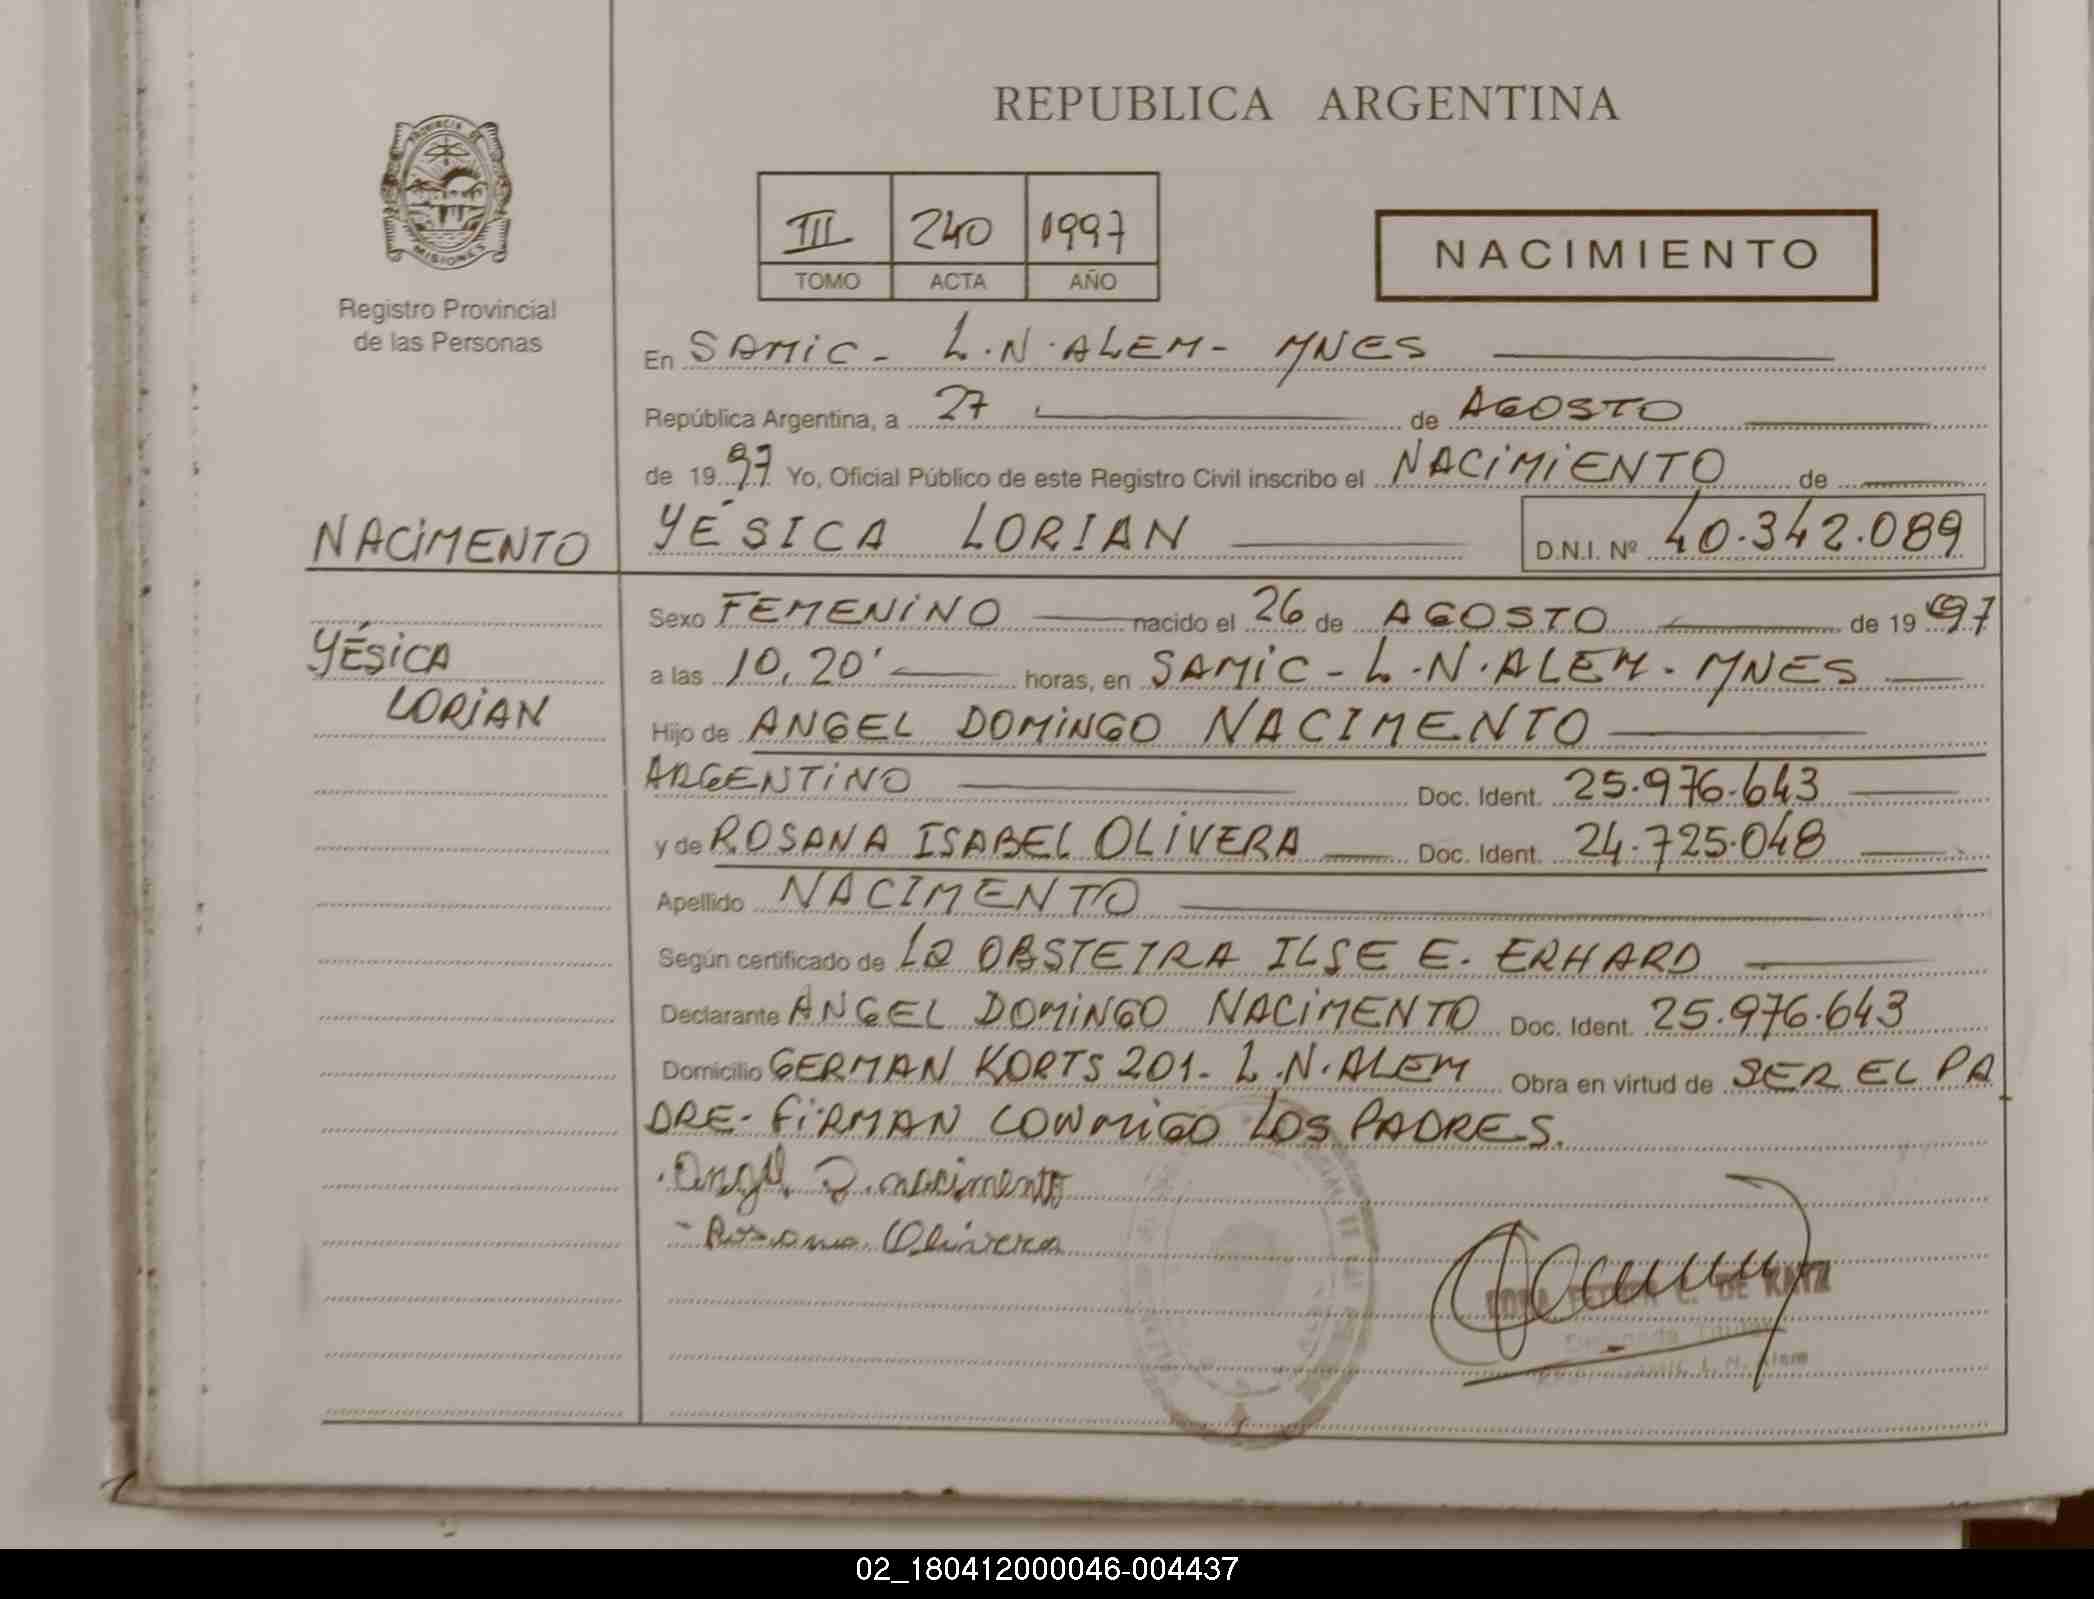 REPUBLICA ARGENTINA
PROVINCIA DE
MISIONES
Registro Provincial
de las Personas
III 240 1997
TOMO ACTA AÑO
NACIMIENTO
En SAMIC - L.N. ALEM - MNES
República Argentina, a 27 de AGOSTO
de 1997 Yo, Oficial Público de este Registro Civil inscribo el NACIMIENTO de
YÉSICA LORIAN D.N.I. Nº 40.342.089
NACIMENTO
YÉSICA
LORIAN
Sexo FEMENINO nacido el 26 de AGOSTO de 1997
a las 10,20' horas, en SAMIC - L.N. ALEM - MNES
Hijo de ANGEL DOMINGO NACIMENTO
ARGENTINO Doc. Ident. 25.976.643
y de ROSANA ISABEL OLIVERA Doc. Ident. 24.725.048
Apellido NACIMENTO
Según certificado de La OBSTETRA ILSE E. ERHARD
Declarante ANGEL DOMINGO NACIMENTO Doc. Ident. 25.976.643
Domicilio GERMAN KORTS 201 - L.N. ALEM Obra en virtud de SER EL PA
DRE - FIRMAN CONMIGO LOS PADRES.
Angel D. nacimento
Rosana Olivera
C. DE KATZ
L. N. Alem
02_180412000046-004437